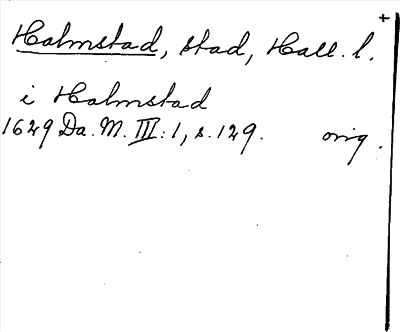 Halmstad, stad, Hall. l. +
i Halmstad
1629 Da. M. III: 1, s. 129. orig.